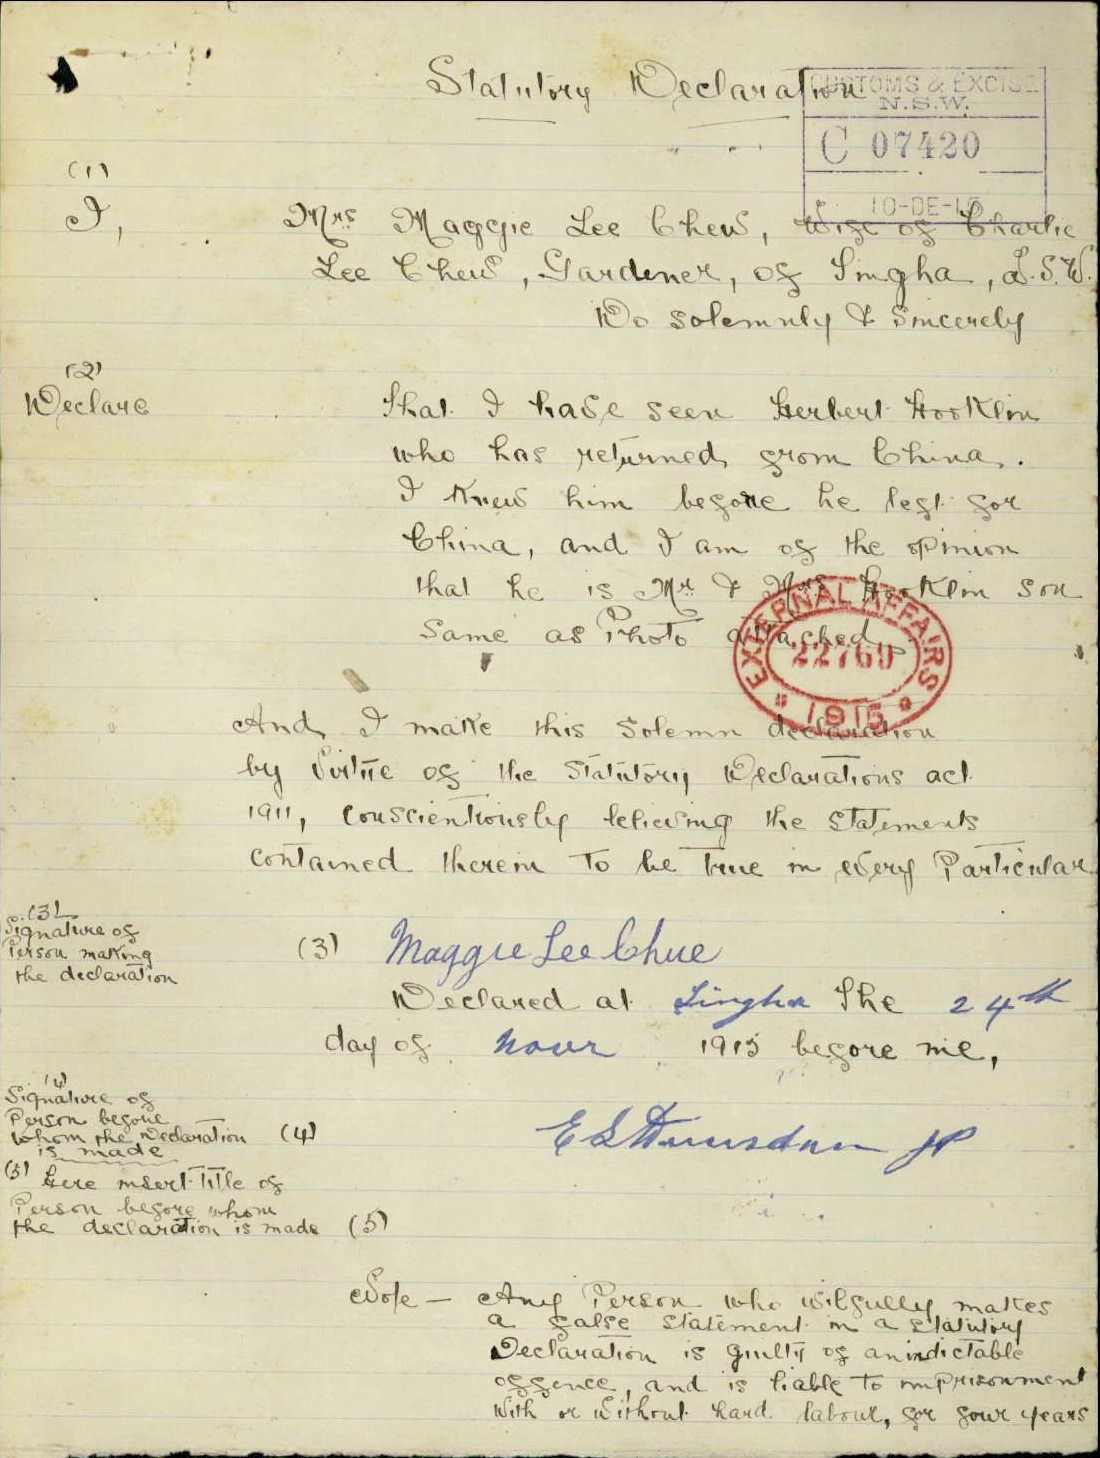 Statutory Declaration
CUSTOMS & EXCISE
N.S.W.
C 07420
10-DE-15
(1)
I, Mrs Maggie Lee Chew, Wife of Charlie
Lee Chew, Gardener, of Singha, N.S.W.
Do solemnly & Sincerely
(2)
Declare that I have seen Herbert Hooklin
who has returned from China.
I knew him before he left for
China, and I am of the opinion
that he is Mr & Mrs Hooklin son
same as Photo attached
EXTERNAL AFFAIRS
22769
1915
And I make this Solemn declaration
by Virtue of the Statutory Declarations act
1911, conscientiously believing the statements
contained therein to be true in every Particular
(3)
Signature of
Person making
the declaration
(3) Maggie Lee Chue
Declared at Singha the 24th
day of Novr 1915 before me,
(4)
Signature of
Person before
whom the Declaration
is made
(4) JP
(5) Here insert Title of
Person before whom
the declaration is made (5)
Note — Any Person who wilfully makes
a false statement in a statutory
Declaration is guilty of an indictable
offence, and is liable to imprisonment
with or without hard labour, for four years